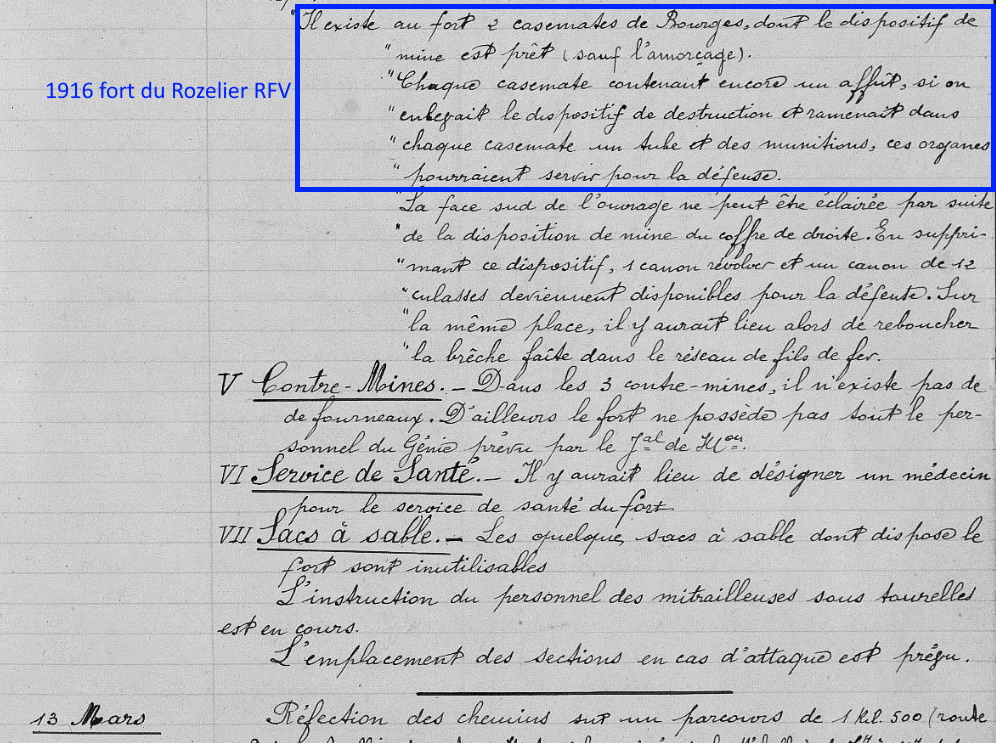 "Il existe au fort 2 casemates de Bourges, dont le dispositif de
"mine est prêt (sauf l'amorçage).
1916 fort du Rozelier RFV
"Chaque casemate contenant encore un affût, si on
"enlevait le dispositif de destruction et ramenait dans
"chaque casemate un tube et des munitions, ces organes
"pourraient servir pour la défense.
"La face sud de l'ouvrage ne peut être éclairée par suite
"de la disposition de mine du coffre de droite. En suppri-
"mant ce dispositif, 1 canon révolver et un canon de 12
"culasses deviennent disponibles pour la défense. Sur
"la même place, il y aurait lieu alors de reboucher
"la brêche faite dans le réseau de fils de fer.
V Contre-Mines. — Dans les 3 contre-mines, il n'existe pas de
de fourneaux. D'ailleurs le fort ne possède pas tout le per-
sonnel du Génie prévu par le Jal de Mon.
VI Service de Santé. — Il y aurait lieu de désigner un médecin
pour le service de santé du fort.
VII Sacs à sable. — Les quelques sacs à sable dont dispose le
fort sont inutilisables
L'instruction du personnel des mitrailleuses sous tourelles
est en cours.
L'emplacement des sections en cas d'attaque est prévu.
13 Mars Réfection des chemins sur un parcours de 1 kil. 500 (route